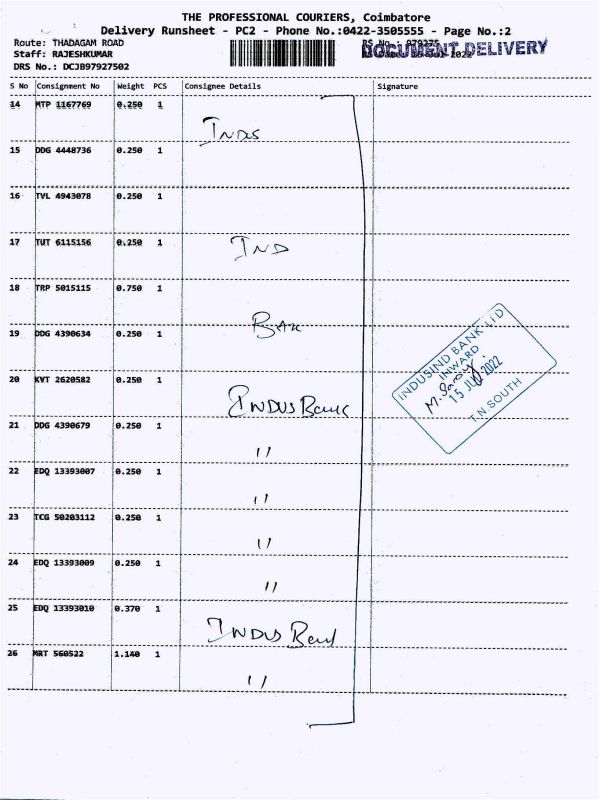 THE PROFESSIONAL COURIERS, Coimbatore
Delivery Runsheet - PC2 - Phone No.:0422-3505555 - Page No.:2
Route: THADAGAM ROAD
Staff: RAJESHKUMAR
DRS No.: DCJB97927502
DOCUMENT DELIVERY
S No Consignment No Weight PCS Consignee Details Signature
14 MTP 1167769 0.250 1
Indus
15 DDG 4448736 0.250 1
16 TVL 4943078 0.250 1
17 TUT 6115156 0.250 1 IND
18 TRP 5015115 0.750 1
Ban
19 DDG 4390634 0.250 1
20 KVT 2620582 0.250 1
INDUS Bank
21 DDG 4390679 0.250 1
"
22 EDQ 13393007 0.250 1
"
23 TCG 50203112 0.250 1
"
24 EDQ 13393009 0.250 1
"
25 EDQ 13393010 0.370 1
INDUS Bank
26 MRT 560522 1.140 1
"
INDUSIND BANK LTD
INWARD
15 JUL 2022
T.N. SOUTH